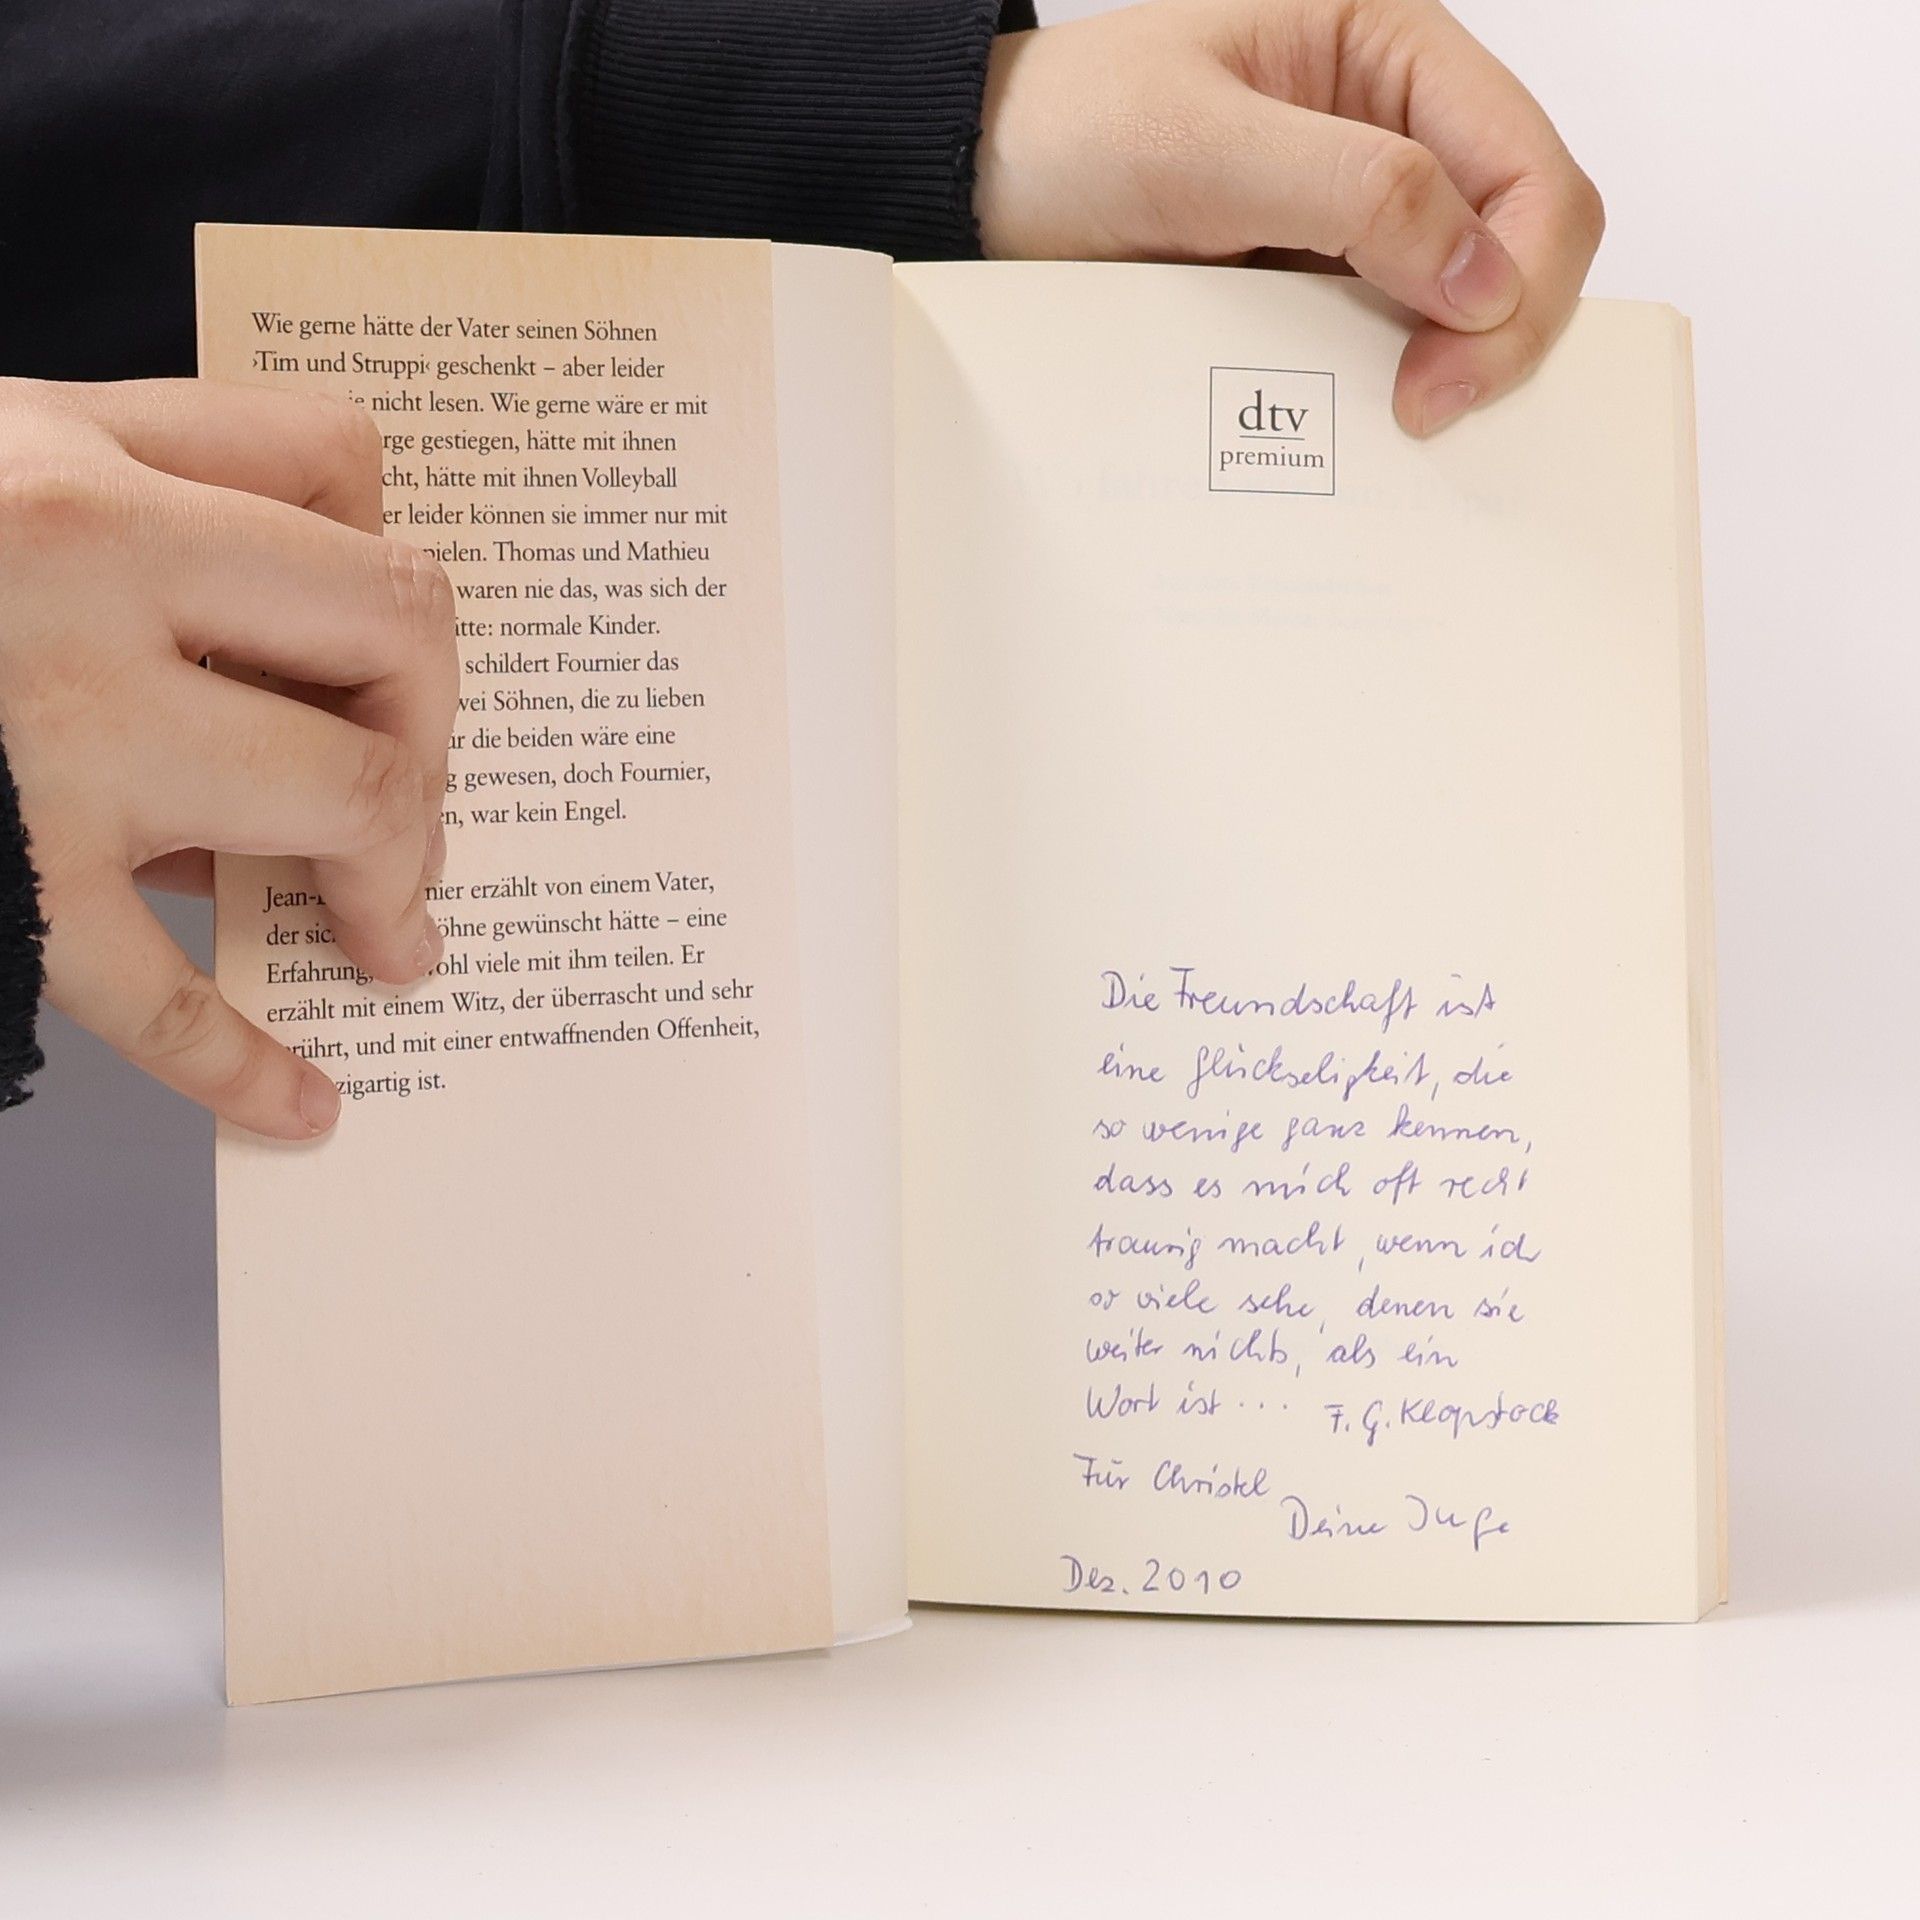 Wie gerne hätte der Vater seinen Söhnen
›Tim und Struppi‹ geschenkt – aber leider
nicht lesen. Wie gerne wäre er mit
gestiegen, hätte mit ihnen
hätte mit ihnen Volleyball
leider können sie immer nur mit
Thomas und Mathieu
waren nie das, was sich der
normale Kinder.
schildert Fournier das
Söhnen, die zu lieben
die beiden wäre eine
gewesen, doch Fournier,
war kein Engel.
erzählt von einem Vater,
der gewünscht hätte – eine
Erfahrung, viele mit ihm teilen. Er
erzählt mit einem Witz, der überrascht und sehr
und mit einer entwaffnenden Offenheit,
ist.
dtv
premium
Die Freundschaft ist
eine Glückseligkeit, die
so wenige ganz kennen,
dass es mich oft recht
traurig macht, wenn ich
so viele sehe, denen sie
weiter nichts, als ein
Wort ist ... F. G. Klopstock
Für Christel
Deine Inge
Dez. 2010